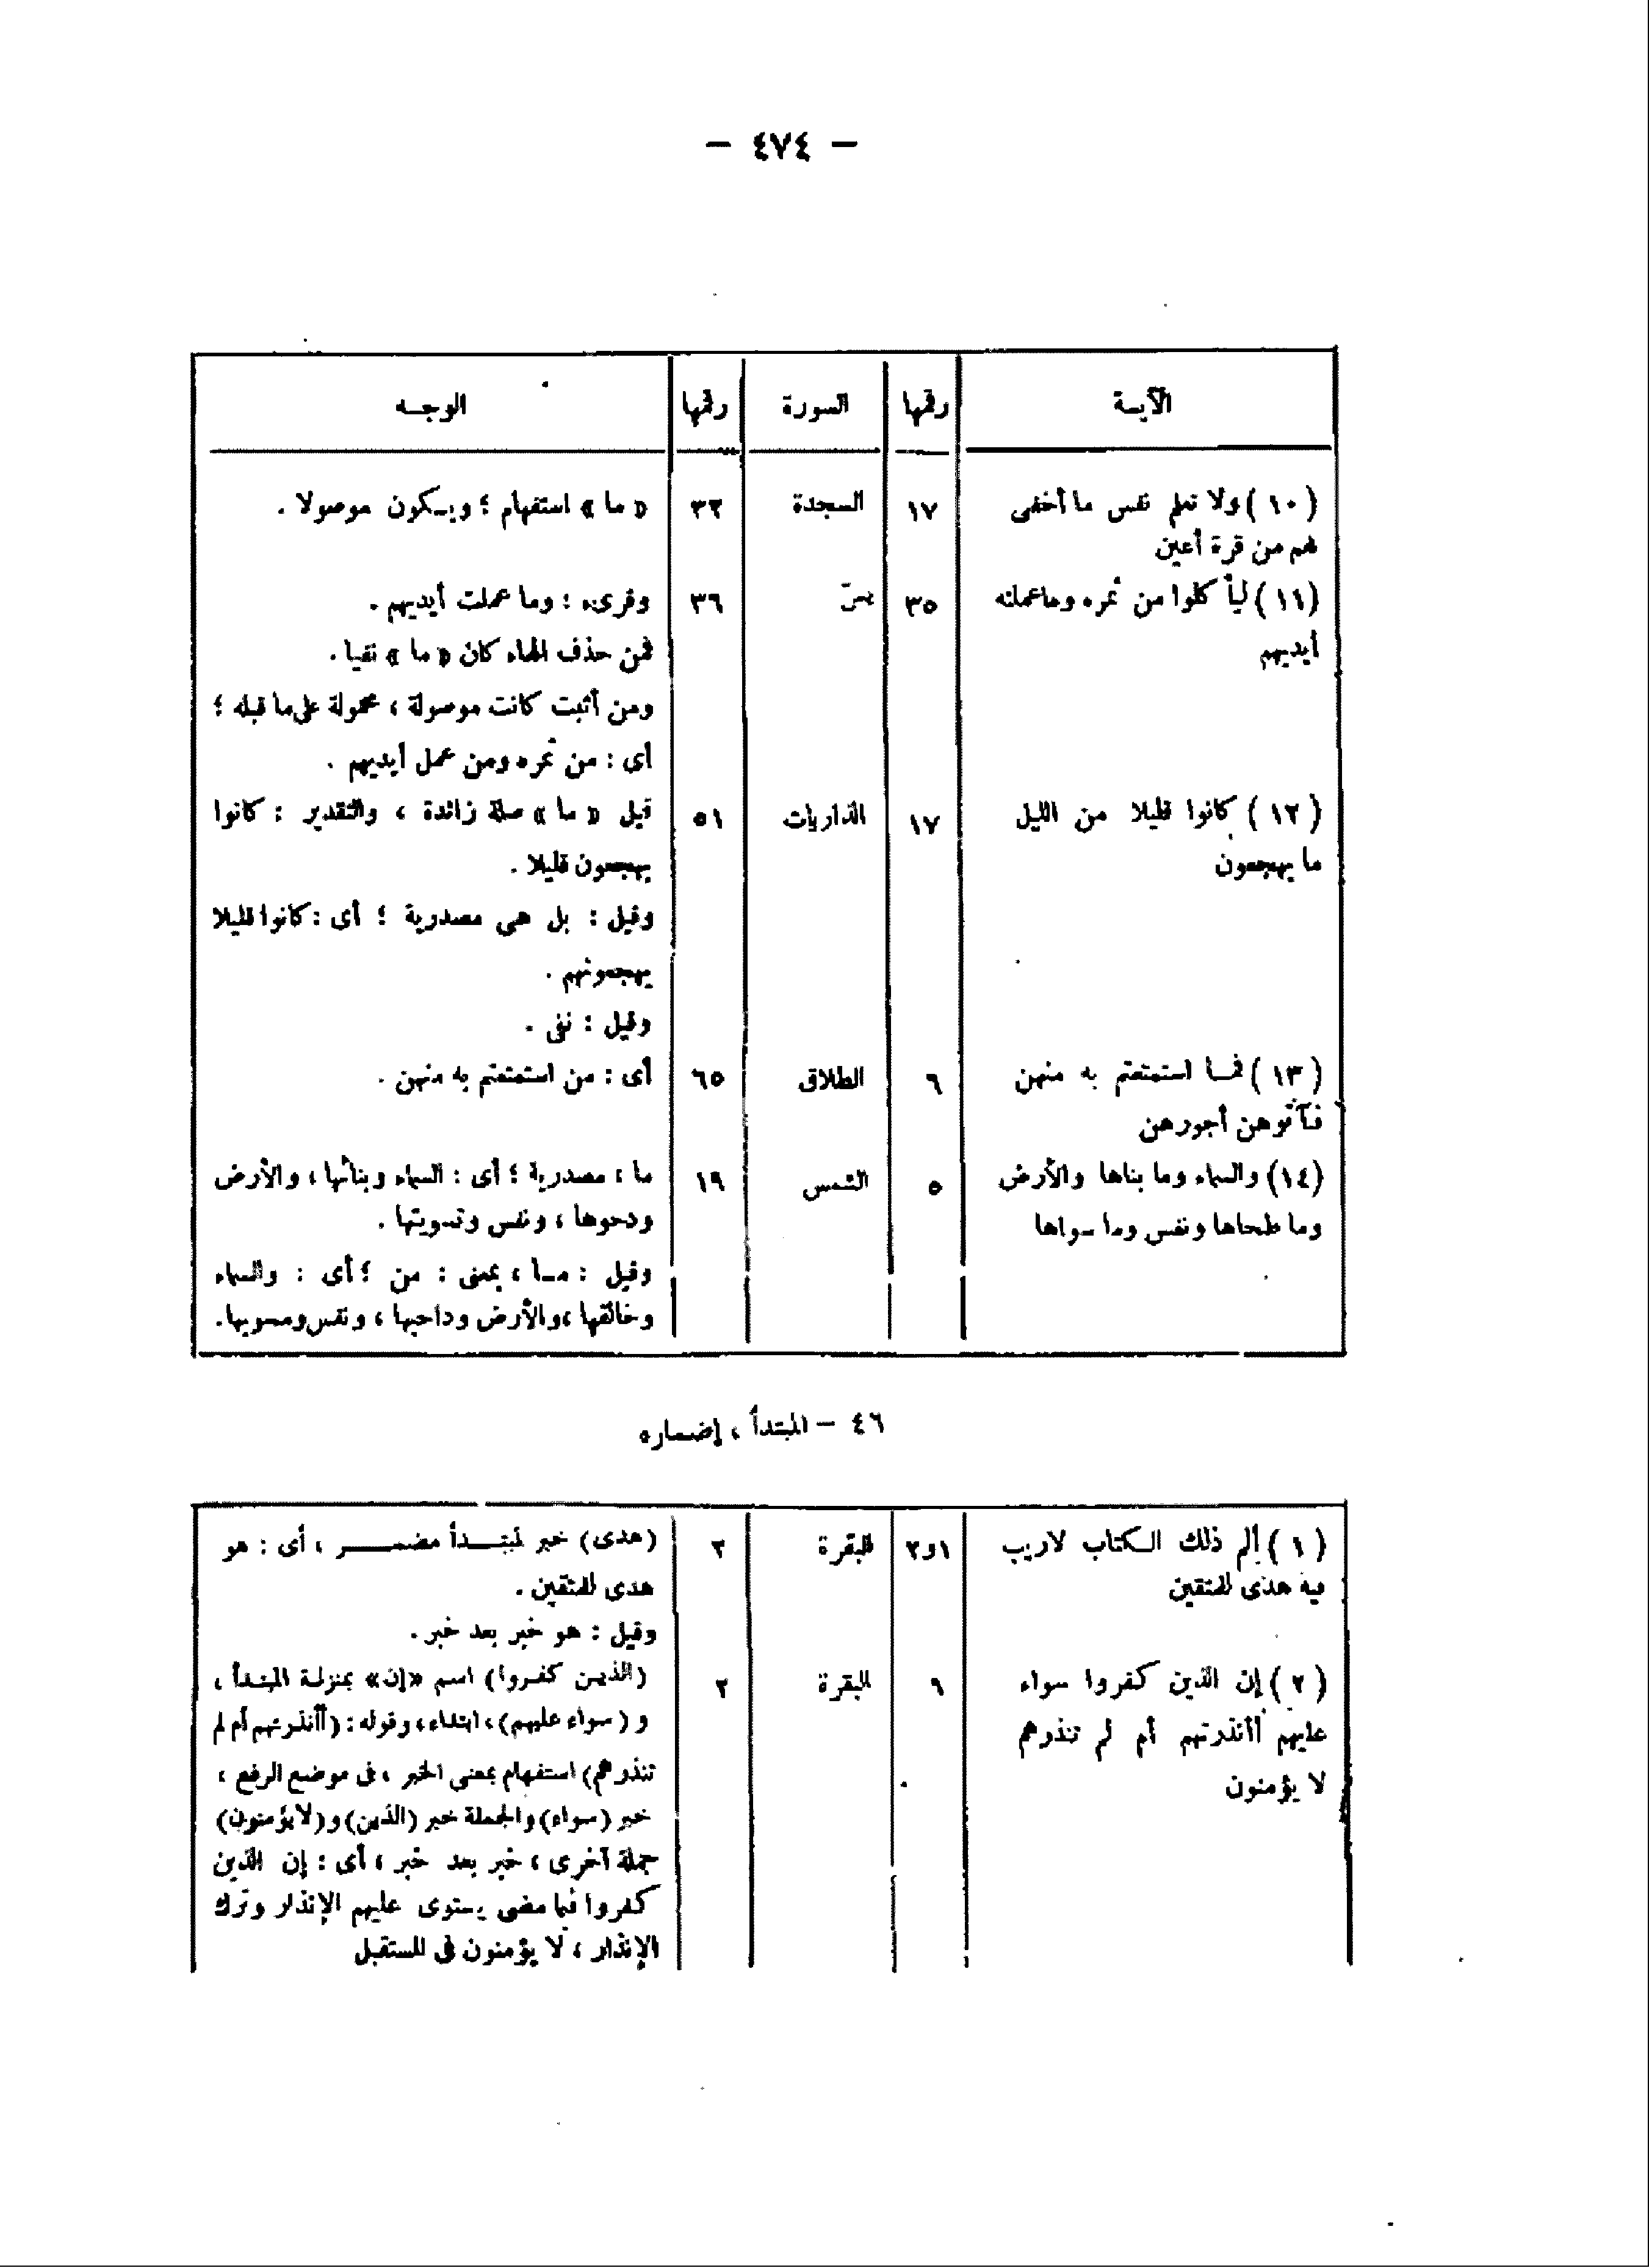 — ٤٧٤ —
الآيـة رقمها السورة رقمها الوجـه
(١٠) ولا تعلم نفس ما أخفى ١٧ السجدة ٣٢ « ما » استفهام ؛ ويـكون موصولا .
لهم من قرة أعين
(١١) ليأكلوا من ثمره وماعملته ٣٥ يسّ ٣٦ وقرىء : وما عملت أيديهم .
أيديهم فمن حذف الهاء كان « ما » نفيا .
ومن أثبت كانت موصولة ، محمولة على ما قبله ؛
أى : من ثمره ومن عمل أيديهم .
(١٢) كانوا قليلا من الليل ١٧ الذاريات ٥١ قيل « ما » صلة زائدة ، والتقدير : كانوا
ما يهجعون يهجعون قليلا .
وقيل : بل هى مصدرية ؛ أى : كانوا قليلا
يهجعونهم .
وقيل : نفى .
(١٣) فمـا استمتعتم به منهن ٦ الطلاق ٦٥ أى : من استمتعتم به منهن .
فآتوهن أجورهن
(١٤) والسماء وما بناها والأرض ٥ الشمس ١٩ ما ، مصدرية ؛ أى : السماء وبنائها ، والأرض
وما طحاها ونفس وما سواها ودحوها ، ونفس وتسويتها .
وقيل : مـا ، بمعنى : من ؛ أى : والسماء
وخالقها ، والأرض وداحيها ، ونفس ومسويها .
٤٦ — المبتدأ ، إضماره
(١) ألم ذلك الـكتاب لاريب ١و٢ البقرة ٢ (هدى) خبر لمبتـدأ مضمـر ، أى : هو
فيه هدى للمتقين هدى للمتقين .
وقيل : هو خبر بعد خبر .
(٢) إن الذين كفروا سواء ٦ البقرة ٢ (الذين كفروا) اسم «إن» بمنزلة المبتدأ ،
عليهم أأنذرتهم أم لم تنذرهم و (سواء عليهم) ، ابتداء ، وقوله : (أأنذرتهم أم لم
لا يؤمنون تنذرهم) استفهام بمعنى الخبر ، فى موضع الرفع ،
خبر (سواء) والجملة خبر (الذين) و (لا يؤمنون)
جملة أخرى ، خبر بعد خبر ، أى : إن الذين
كفروا فيما مضى يستوى عليهم الإنذار وترك
الإنذار ، لا يؤمنون فى المستقبل